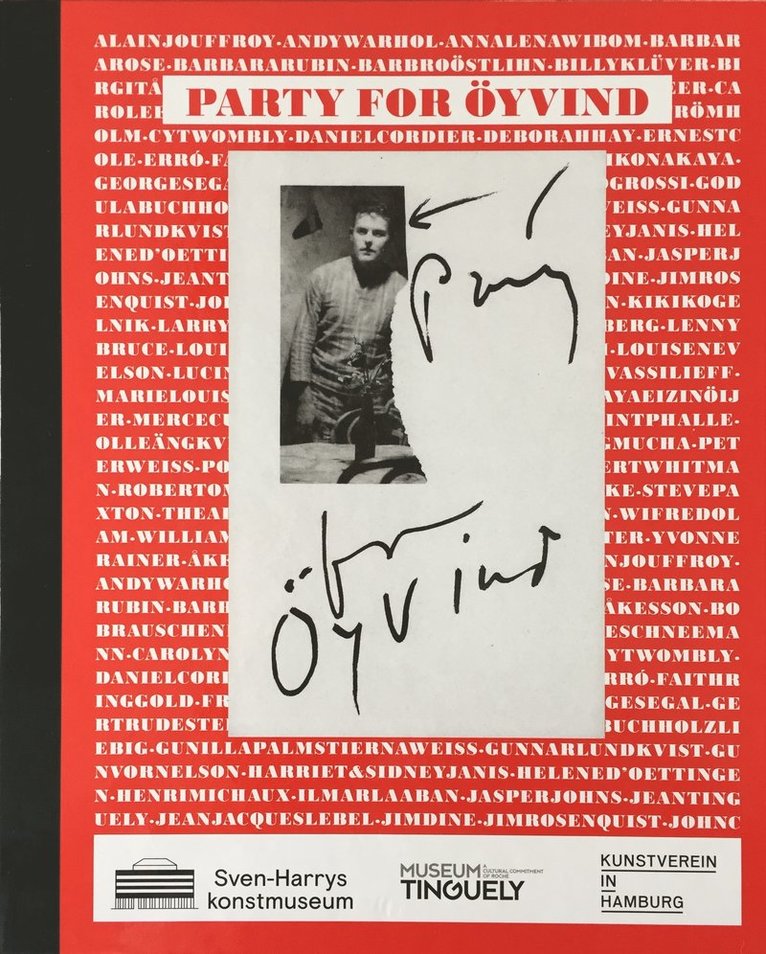 ALAINJOUFFROY-ANDYWARHOL-ANNALENAWIBOM-BARBAR
AROSE-BARBARARUBIN-BARBROÖSTLIHN-BILLYKLÜVER-BI
RGITÅ EER-CA
PARTY FOR ÖYVIND
ROLEE RÖMH
OLM-CYTWOMBLY-DANIELCORDIER-DEBORAHHAY-ERNESTC
OLE-ERRÓ-FA IKONAKAYA-
GEORGESEGA OGROSSI-GOD
ULABUCHHO WEISS-GUNNA
RLUNDKVIST EYJANIS-HEL
ENED'OETTI AN-JASPERJ
OHNS-JEANT DINE-JIMROS
ENQUIST-JOH N-KIKIKOGE
LNIK-LARRY BERG-LENNY
BRUCE-LOUI -LOUISENEV
ELSON-LUCIN VASSILIEFF-
MARIELOUIS AYAEIZINÖIJ
ER-MERCECU INTPHALLE-
OLLEÄNGKV GMUCHA-PET
ERWEISS-PO ERTWHITMA
N-ROBERTON KE-STEVEPA
XTON-THEAD N-WIFREDOL
AM-WILLIAM TER-YVONNE
RAINER-ÅKE NJOUFFROY-
ANDYWARHO SE-BARBARA
RUBIN-BARB ÅKESSON-BO
BRAUSCHEN ESCHNEEMA
NN-CAROLYN YTWOMBLY-
DANIELCORD RRÓ-FAITHR
INGGOLD-FR GESEGAL-GE
RTRUDESTEI BUCHHOLZLI
Party
for
Öyvind
EBIG-GUNILLAPALMSTIERNAWEISS-GUNNARLUNDKVIST-GU
NVORNELSON-HARRIET&SIDNEYJANIS-HELENED'OETTINGE
N-HENRIMICHAUX-ILMARLAABAN-JASPERJOHNS-JEANTING
UELY-JEANJACQUESLEBEL-JIMDINE-JIMROSENQUIST-JOHNC
Sven-Harrys
konstmuseum
MUSEUM A CULTURAL COMMITMENT OF ROCHE
TINGUELY
KUNSTVEREIN
IN
HAMBURG